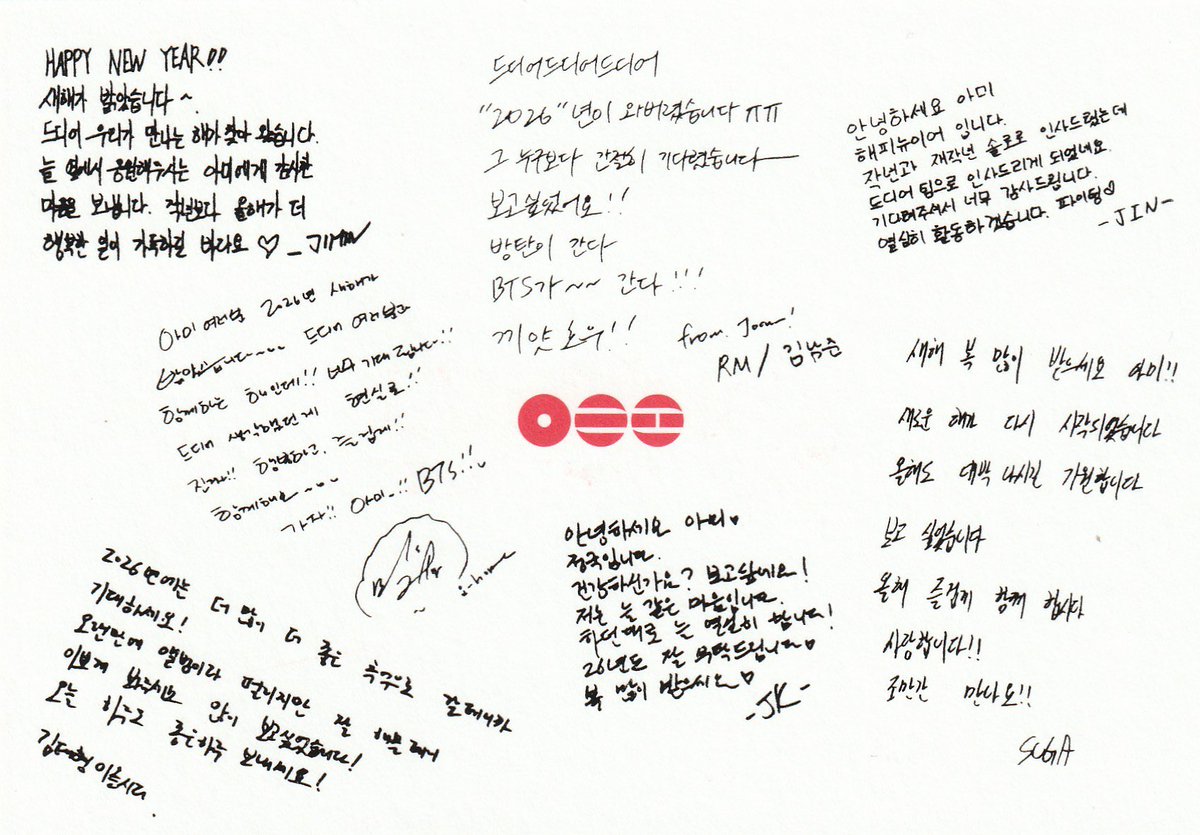 HAPPY NEW YEAR!!
새해가 밝았습니다 ~.
드디어 우리가 만나는 해가 찾아 왔습니다.
늘 옆에서 응원해주시는 아미에게 감사한
마음을 보냅니다. 작년보다 올해가 더
행복한 일이 가득하길 바라요 ♡ - JIMIN
드디어드디어드디어
"2026"년이 와버렸습니다 ㅠㅠ
그 누구보다 간절히 기다렸습니다
보고싶었어요!!
방탄이 간다
BTS가~~ 간다!!!
끼얏호우!!
from. Joon!
RM / 김남준
안녕하세요 아미
해피뉴이어 입니다.
작년과 재작년 솔로로 인사드렸는데
드디어 팀으로 인사드리게 되었네요.
기다려주셔서 너무 감사드립니다.
열심히 활동하겠습니다. 파이팅♡
-JIN-
아미 여러분 2026년 새해가
밝았습니다~~ 드디어 여러분과
함께하는 해인데!! 너무 기대 됩니다!!
드디어 생각했던게 현실로!!
진짜!! 행복하고, 즐겁게!!
함께해요~~
가자!! 아미~!! BTS!!
j-hope
새해 복 많이 받으세요 아미!!
새로운 해가 다시 시작되었습니다
올해도 대박 나시길 기원합니다
보고 싶었습니다
올해 즐겁게 함께 합시다
사랑합니다!!
조만간 만나요!!
SUGA
2026년에는 더 많이 더 좋은 쪽으로 갈테니까
기대하세요!
오랜만에 앨범이라 떨리지만 잘 해볼테니
이쁘게 봐주시요 많이 보고싶었습니다!
오늘 하루도 좋은하루 보내세요!
김태형이올시다.
안녕하세요 아미♥
정국입니다.
건강하신가요? 보고싶네요!
저는 늘 같은 마음입니다.
하던대로 늘 열심히 합니다!
26년도 잘 부탁드립니다♥
복 많이 받으세요♥
-JK-